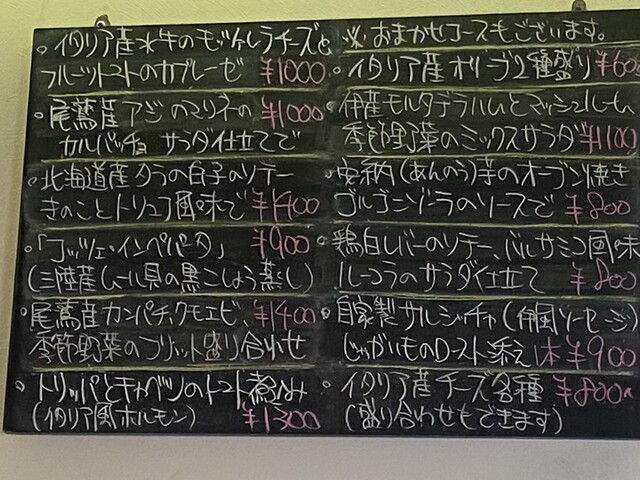 ・イタリア産水牛のモッツァレラチーズと
フルーツトマトのカプレーゼ ¥1000
・尾鷲産アジのマリネの ¥1000
カルパッチョ サラダ仕立てで
・北海道産タラの白子のソテー
きのことトリュフ風味で ¥1400
・「コッツェ・インペパータ」 ¥900
(三陸産ムール貝の黒こしょう蒸し)
・尾鷲産カンパチ、クモエビ、 ¥1400
季節野菜のフリット盛り合わせ
・トリッパとキャベツのトマト煮込み
(イタリア風ホルモン) ¥1300
※おまかせコースもございます。
・イタリア産オリーブ2種盛り ¥600
・伊産モルタデラハムとマッシュルーム、
季節野菜のミックスサラダ ¥1100
・安納(あんのう)芋のオーブン焼き
ゴルゴンゾーラのソースで ¥800
・鶏白レバーのソテー、バルサミコ風味
ルーコラのサラダ仕立て ¥800
・自家製サルシッチャ(伊国ソーセージ)
じゃがいものロースト添え 1本¥900
・イタリア産チーズ各種 ¥800〜
(盛り合わせもできます)